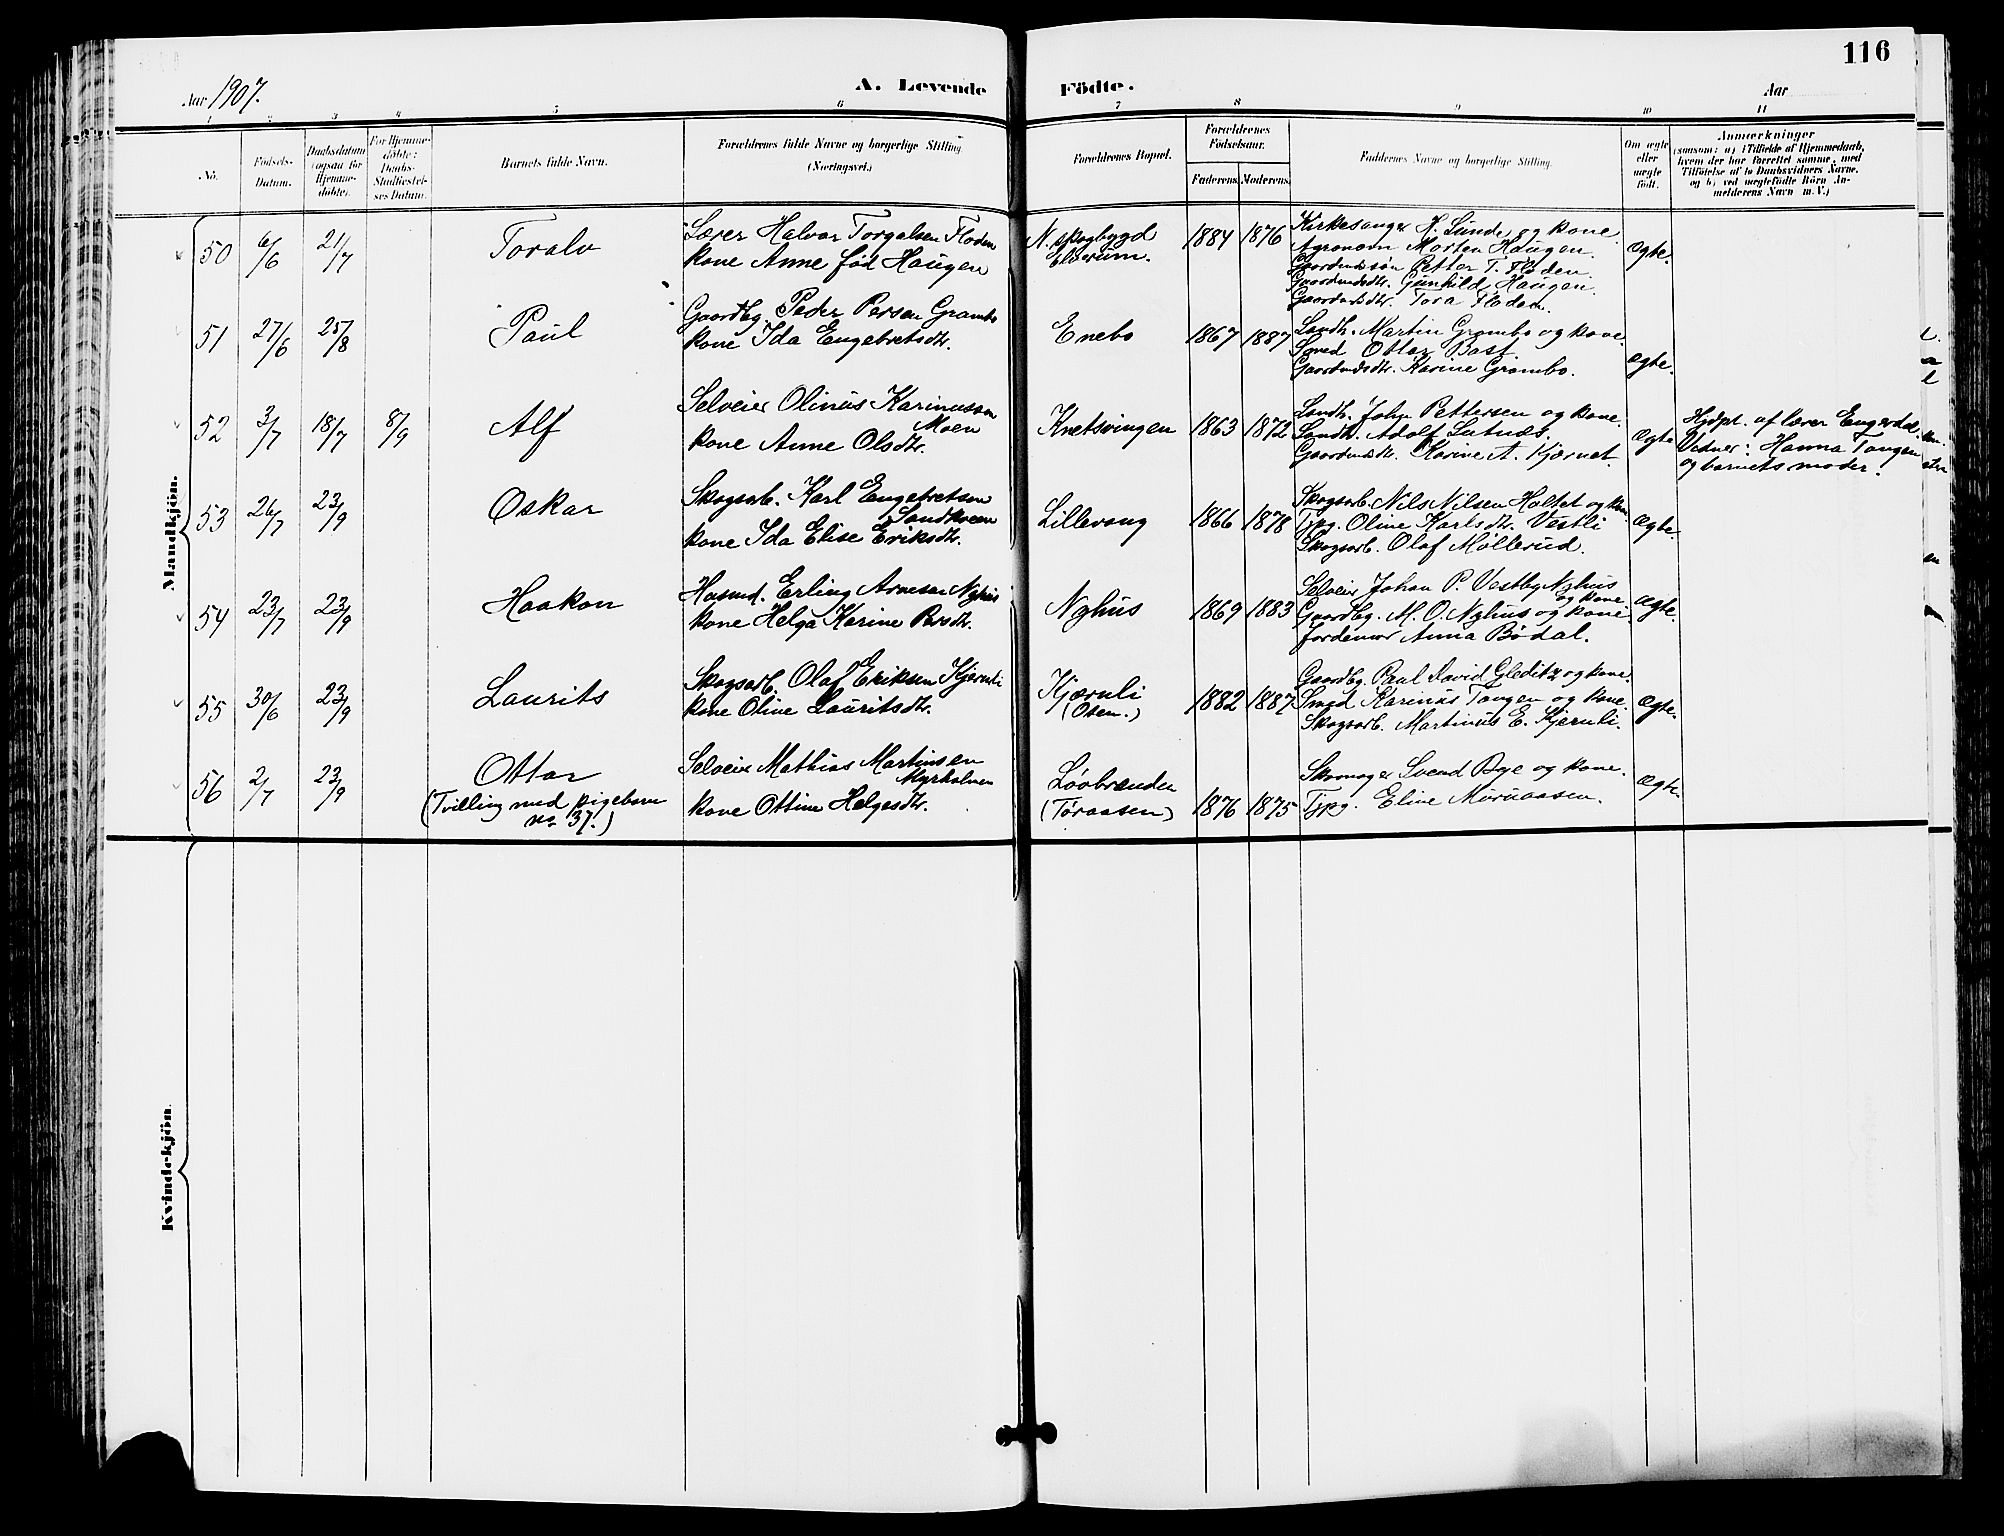 116
Aar 1907.
A. Levende Födte.
Aar
1 2 3 4 5 6 7 8 9 10 11
No.
Födsels-
Datum.
Daabsdatum
(ogsaa for
Hjemme-
döbte).
For Hjemme-
döbte:
Daabs-
Stadfæstel-
ses Datum.
Barnets fulde Navn.
Forældrenes fulde Navne og borgerlige Stilling
(Næringsvei.)
Forældrenes Bopæl.
Forældrenes
Födselsaar.
Faderens. Moderens.
Faddernes Navne og borgerlige Stilling.
Om ægte
eller
uægte
födt.
Anmærkninger
(saasom: a) i Tilfælde af Hjemmedaab,
hvem der har forrettet samme, med
Tilföielse af to Daabsvidners Navne.
og b) ved uægtefödte Börn An-
melderens Navn m. V.)
Mandkjön.
50 6/6 21/7 Toralv
Lærer Halvor Torgalsen Floden
kone Anne fød Haugen
N. Skogbygd
Elverum.
1884 1876
Kirkesanger H. Sunde og kone.
Agronom Morten Haugen.
Gaardmdssøn Petter T. Floden.
Gaardmdsdtr. Gunhild Haugen.
Gaardmdsdtr. Tora Floden.
Ægte.
51 27/6 25/8 Paul
Gaardbg. Peder Persen Grambo
kone Ida Engebretsdtr.
Enebo
1867 1887
Landh. Martin Grambo og kone.
Smed Ottar Bast.
Gaardmdsdtr. Karine Grambo.
Ægte.
52 3/7 18/7 8/9 Alf
Selveier Olinus Karinussen
Moen
kone Anne Olsdtr.
Knetsvingen
1863 1872
Landh. John Pettersen og kone.
Landh. Adolf Lutnæs.
Gaardmdsdtr. Karine A. Kjernet.
Ægte
Hjdpt. af lærer Engerdal.
Vidner: Hanna Tangen
og barnets moder.
53 26/7 23/9 Oskar
Skogsarb. Karl Engebretsen
Sandkveen
kone Ida Elise Eriksdtr.
Lillevang
1866 1878
Skogsarb. Nils Nilsen Holtet og kone
Tjpg. Oline Karlsdtr. Vestli
Skogsarb. Olaf Møllerud.
Ægte.
54 23/7 23/9 Haakon
Husmd. Erling Arnesen Nyhus
kone Helga Karine Persdtr.
Nyhus
1869 1883
Selveier Johan P. Vestby Nyhus
og kone
Gaardbg. M. O. Nyhus og kone
Jordemor Anna Bødal.
Ægte.
55 30/6 23/9 Laurits
Skogsarb. Olaf Eriksen Kjernli
kone Oline Lauritsdtr.
Kjærnli
(Osen.)
1882 1887
Gaardbg. Paul David Gleditz og kone.
Smed Karinus Tangen og kone.
Skogsarb. Martinus E. Kjernli.
Ægte.
56 2/7 23/9 Ottar
(Tvilling med pigebarn
no 37.)
Selveier Mathias Martinsen
Myrholmen
kone Ottine Helgesdtr.
Løvbrænden
(Tøraasen)
1876 1875
Skomager Svend Bye og kone.
Tjpg. Eline Møruaasen.
Ægte.
Kvindekjön.